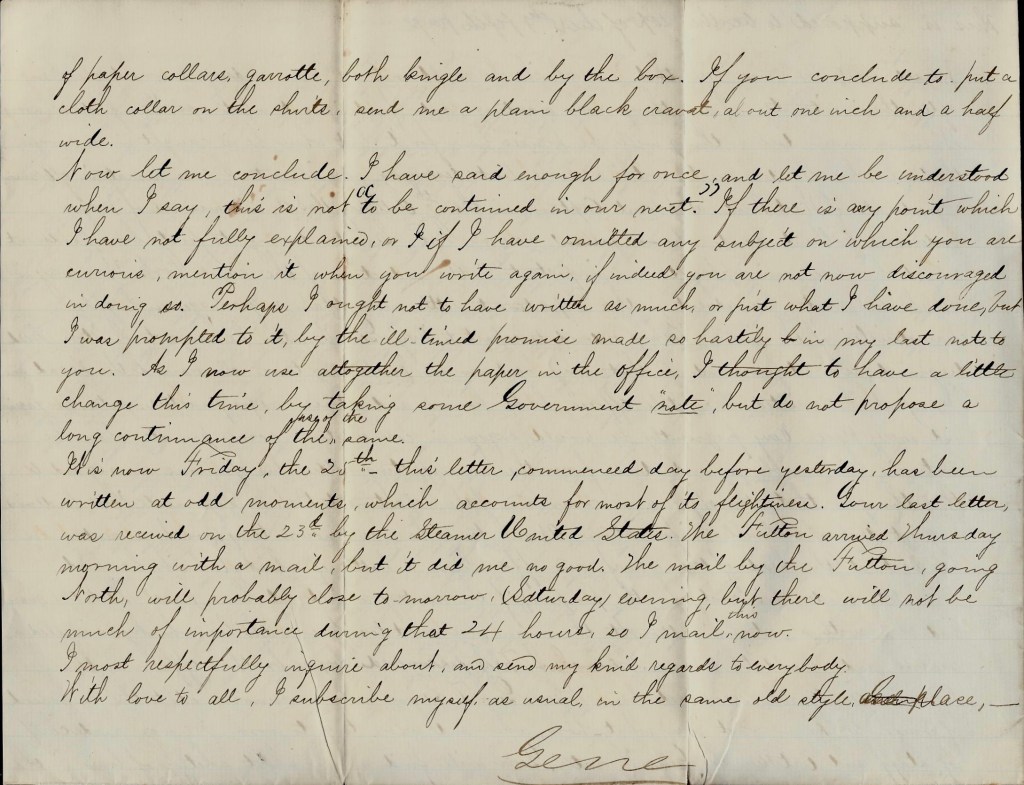 of paper collars, garrotte, both single and by the box. If you conclude to put a
cloth collar on the shirts, send me a plain black cravat, about one inch and a half
wide.
Now let me conclude. I have said enough for once, and let me be understood
when I say, this is not "to be continued in our next." If there is any point which
I have not fully explained, or if I have omitted any subject on which you are
curious, mention it when you write again, if indeed you are not now discouraged
in doing so. Perhaps I ought not to have written as much, or just what I have done, but
I was prompted to it, by the ill-timed promise made so hastily in my last note to
you. As I now use altogether the paper in the office, I thought to have a little
change this time, by taking some Government "note", but do not propose a
long continuance of the use of the same.
It is now Friday, the 25th this letter, commenced day before yesterday, has been
written at odd moments, which accounts for most of its flightiness. Your last letter,
was received on the 23d by the Steamer United States. The Fulton arrived Thursday
morning with a mail, but it did me no good. The mail by the Fulton, going
North, will probably close to-morrow, (Saturday) evening, but there will not be
much of importance during that 24 hours, so I mail this now.
I most respectfully inquire about, and send my kind regards to everybody
With love to all, I subscribe myself, as usual, in the same old style, place, —
Gene